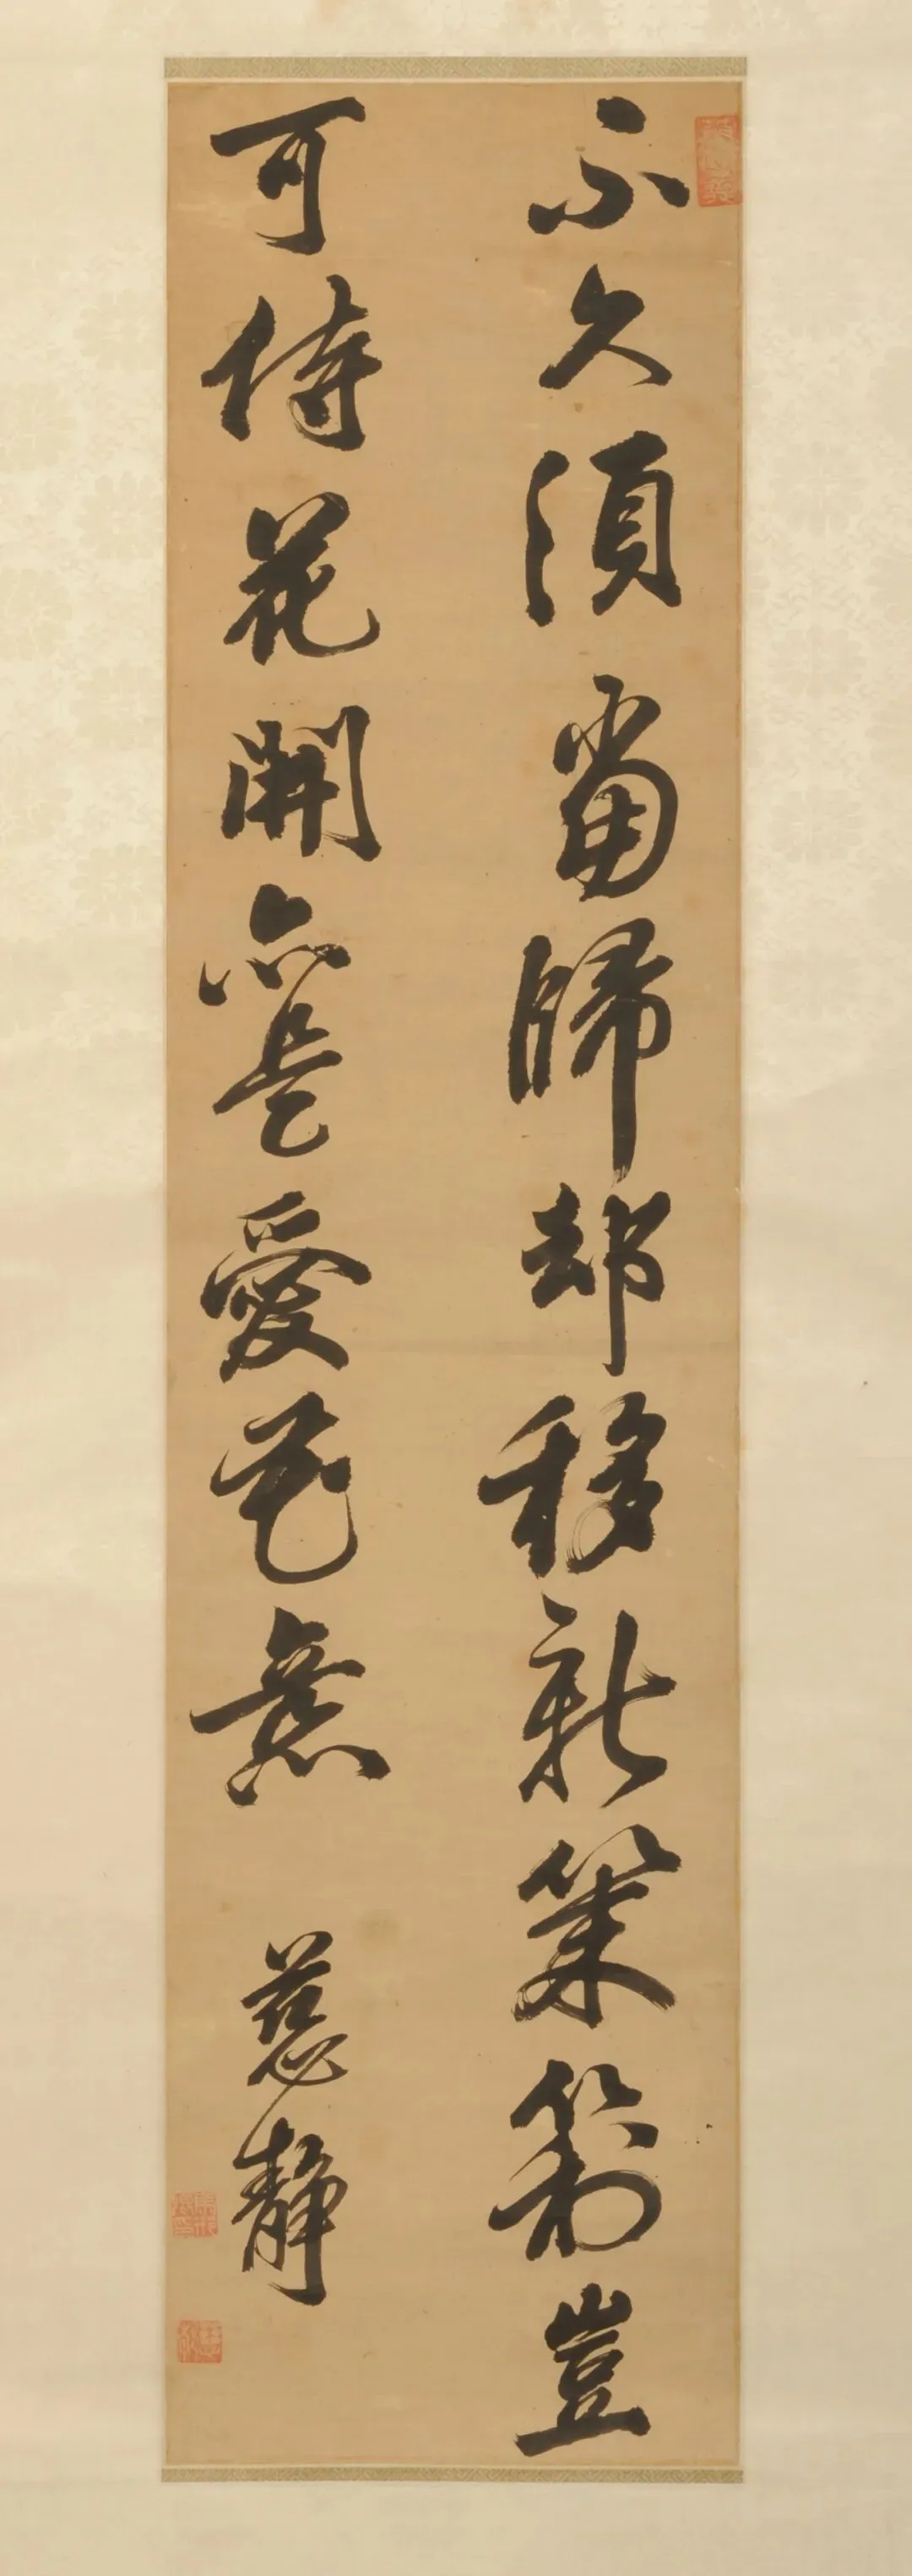 不久須當歸却移新築第豈
可待花開亦是愛花意
慈靜